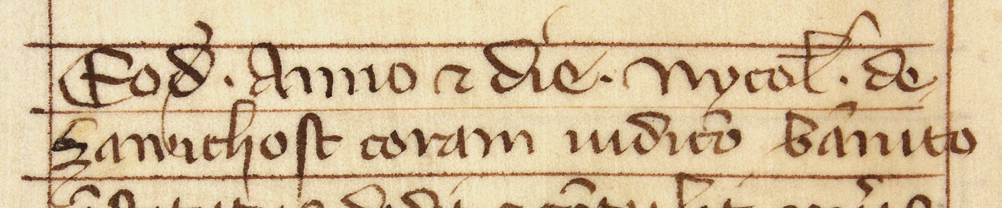 Eod̄. Anno ⁊ die. Nycol̄. de
Zawichost coram iudic̄o ban̄ito